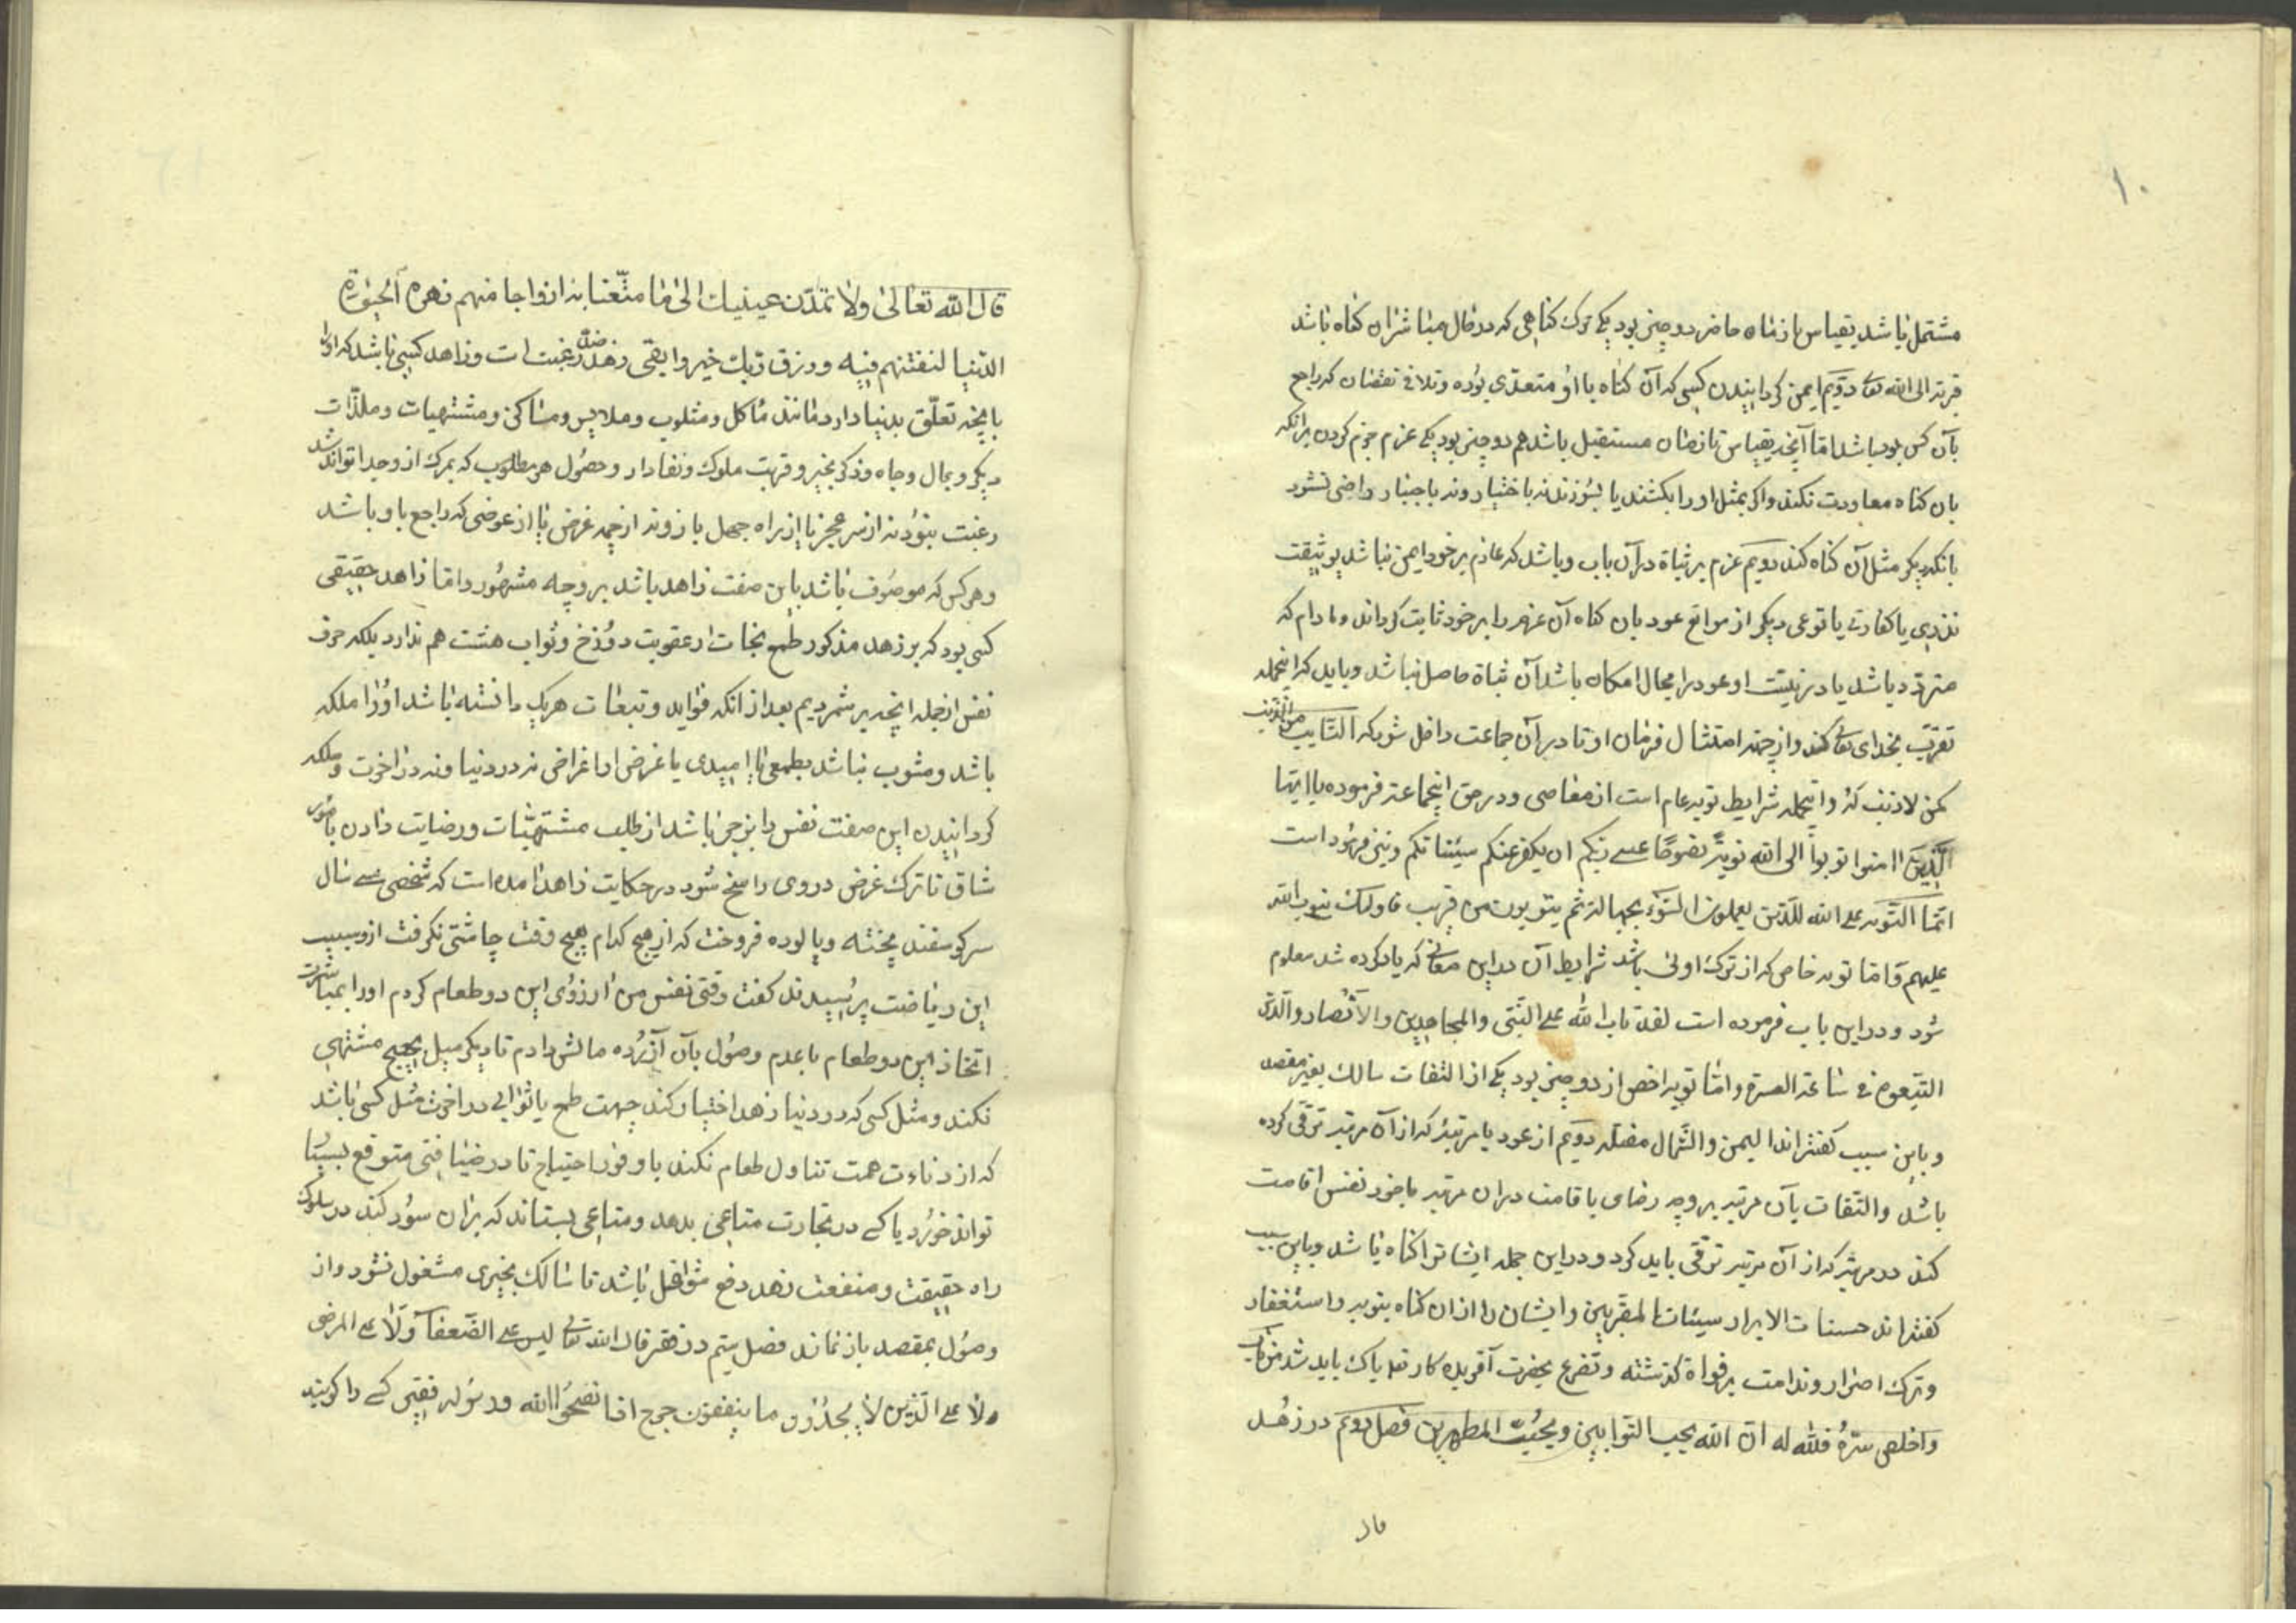 ۱۰
مشتمل باشد بقیاس با زمان حاضر دو چیز بود یکی ترک کناهی که در حال مباشر آن کناه باشد
قربة الی الله تعالی دویم ایمن کردانیدن کسی که آن کناه با او متعدی بوده و تلافی نقصان که راجع
بآن کس بود باشد اما آنچه بقیاس با زمان مستقبل باشد هم دو چیز بود یکی عزم جزم کردن برانکه
بان کناه معاودت نکند و اکر بمثل او را بکشند یا بسوزند نه باختیار و نه باجبار راضی نشود
بانکه دیکر مثل آن کناه کند دویم عزم بر ثباة در آن باب و باشد که عازم بر خود ایمن نباشد بوثیقت
نذری یا کفارتی یا نوعی دیکر از موانع عود بان کناه آن عزم را بر خود ثابت کرداند و مادام که
متردد باشد یا در نیت او عود را مجال امکان باشد آن ثباة حاصل نباشد و باید که اینجمله
تقرب بخدای تعالی کند و از جهة امتثال فرمان او تا در آن جماعت داخل شود که التایب من الذنب
کمن لا ذنب له و اینجمله شرایط توبه عام است از معاصی و در حق اینجماعة فرموده یا ایها
الذین امنوا توبوا الی الله توبة نصوحا عسی ربکم ان یکفر عنکم سیئاتکم و نیز فرمود است
انما التوبه علی الله للذین یعملون السوء بجهالة ثم یتوبون من قریب فاولئک یتوب الله
علیهم و اما توبه خاص که از ترک اولی باشد شرایط آن در این معانی که یاد کرده شد معلوم
شود و در این باب فرموده است لقد تاب الله علی النبی والمهاجرین والانصار والذین
اتبعوه فی ساعة العسرة و اما توبه اخص از دو چیز بود یکی از التفات سالک بغیر مقصد
و باین سبب کفته‌اند الیمین والشمال مضله دویم از عود با مرتبه که از آن مرتبه ترقی کرده
باشد و التفات بآن مرتبه بر وجه رضای باقامت در ان مرتبه با خود نفس اقامت
کند در مرتبه که از آن مرتبه ترقی باید کرد و در این جمله ایشانرا کناه باشد و باین سبب
کفته‌اند حسنات الابرار سیئات المقربین و ایشان را از ان کناه بتوبه و استغفار
و ترک اصرار و ندامت بر فواة کذشته و تضرع بحضرت آفریده کار تعالی پاک باید شد من تاب
و اخلص سره فالله له ان الله یحب التوابین و یحب المطهرین فصل دویم در زهد
قال
قال الله تعالی ولا تمدن عینیک الی ما متعنا به ازواجا منهم زهرة الحیوة
الدنیا لنفتنهم فیه و رزق ربک خیر وابقی زهد ضد رغبت است و زاهد کسی باشد که او را
بآنچه تعلق بدنیا دارد مانند ماکل و مشارب و ملابس و مساکن و مشتهیات و ملذات
دیکر و بمال و جاه و ذکر بخیر و قربت ملوک و نفاذ امر و حصول هر مطلوب که بمرک از و جدا تواند شد
رغبت نبود نه از سر عجز یا از راه جهل باز و نه از جهة غرض یا از عوضی که راجع باو باشد
و هر کس که موصوف باشد باین صفت زاهد باشد بر وجه مشهور و اما زاهد حقیقی
کسی بود که بر زهد مذکور طمع نجات از عقوبت دوزخ و ثواب هشت هم ندارد بلکه صرف
نفس از جمله انچه برشمردیم بعد از انکه فواید و تبعات هریک دانسته باشد او را ملکه
باشد و مشوب نباشد بطمعی یا امیدی یا غرضی از اغراض نه در دنیا و نه در اخرت و ملکه
کردانیدن این صفت نفس را بزجر باشد از طلب مشتهیات و ریاضت دادن بامور
شاق تا ترک غرض در وی راسخ شود در حکایت زاهدان امده است که شخصی سی سال
سر کوسفند پخته و پالوده فروخت که از هیچ کدام هیچ وقت چاشنی نکرفت از و سبب
این ریاضت پرسیدند کفت وقتی نفس من آرزوی این دو طعام کردم اورا بمباشرت
اتخاذ این دو طعام با عدم وصول بآن آرزو مالش دادم تا دیکر میل بهیچ مشتهی
نکند و مثل کسی که در دنیا زهد اختیار کند جهت طمع یا ثوابی در اخرت مثل کسی باشد
که از دناءت همت تناول طعام نکند با وفور احتیاج تا در ضیافتی متوقع بسیار
تواند خورد یا کسی در تجارت متاعی بدهد و متاعی بستاند که بران سود کند در سلوک
راه حقیقت و منفعت زهد دفع شواغل باشد تا سالک بچیزی مشغول نشود و از
وصول بمقصد باز نماند فصل سیم در فقر قال الله تعالی لیس علی الضعفآ ولا علی المرضی
ولا علی الذین لا یجدون ما ینفقون حرج اذا نصحوا الله ورسوله فقیر کسی را کویند